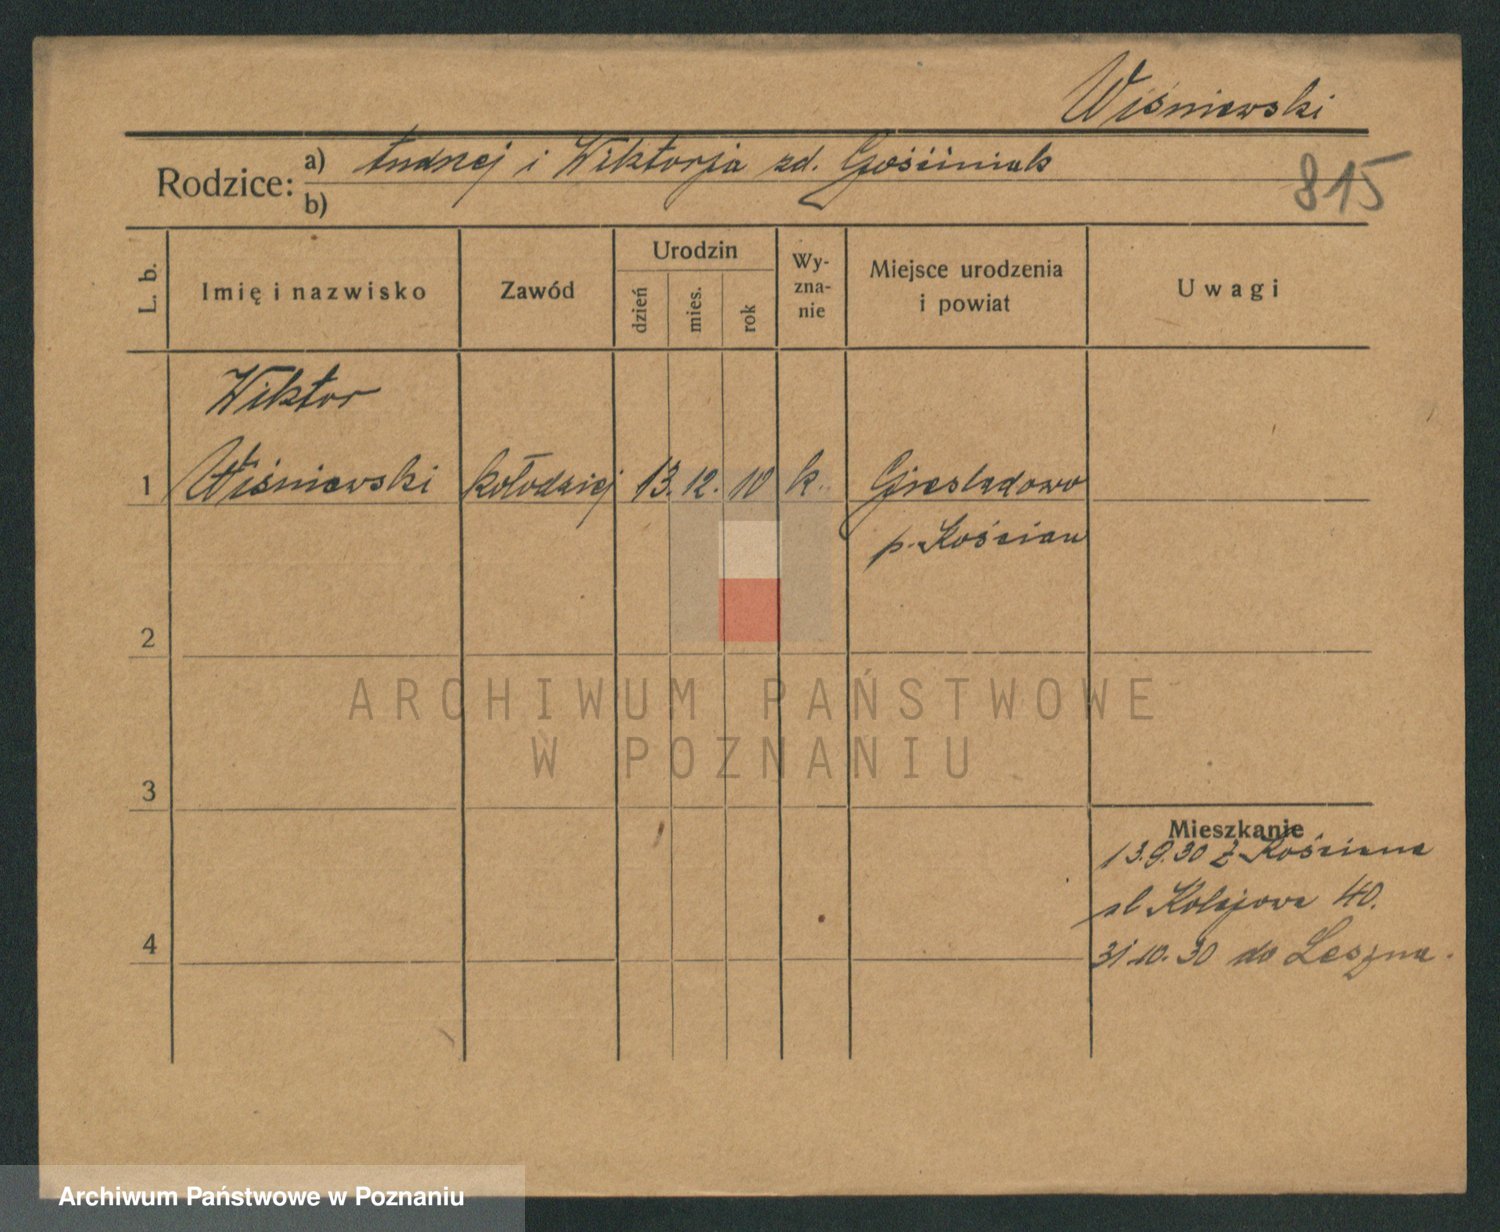 Wiśniewski
Rodzice: a) Andrzej i Wiktorja zd. Gościniak
b)
815
L. b.
Imię i nazwisko
Zawód
Urodzin
dzień
mies.
rok
Wy-
zna-
nie
Miejsce urodzenia
i powiat
Uwagi
Wiktor
1 Wiśniewski kołodziej 13. 12. 10 k.
p. Kościan
2
ARCHIWUM PAŃSTWOWE
W POZNANIU
3
Mieszkanie
13.9.30 z Kościana
ul Kolejowa 40.
4
31.10.30 do Leszna.
Archiwum Państwowe w Poznaniu